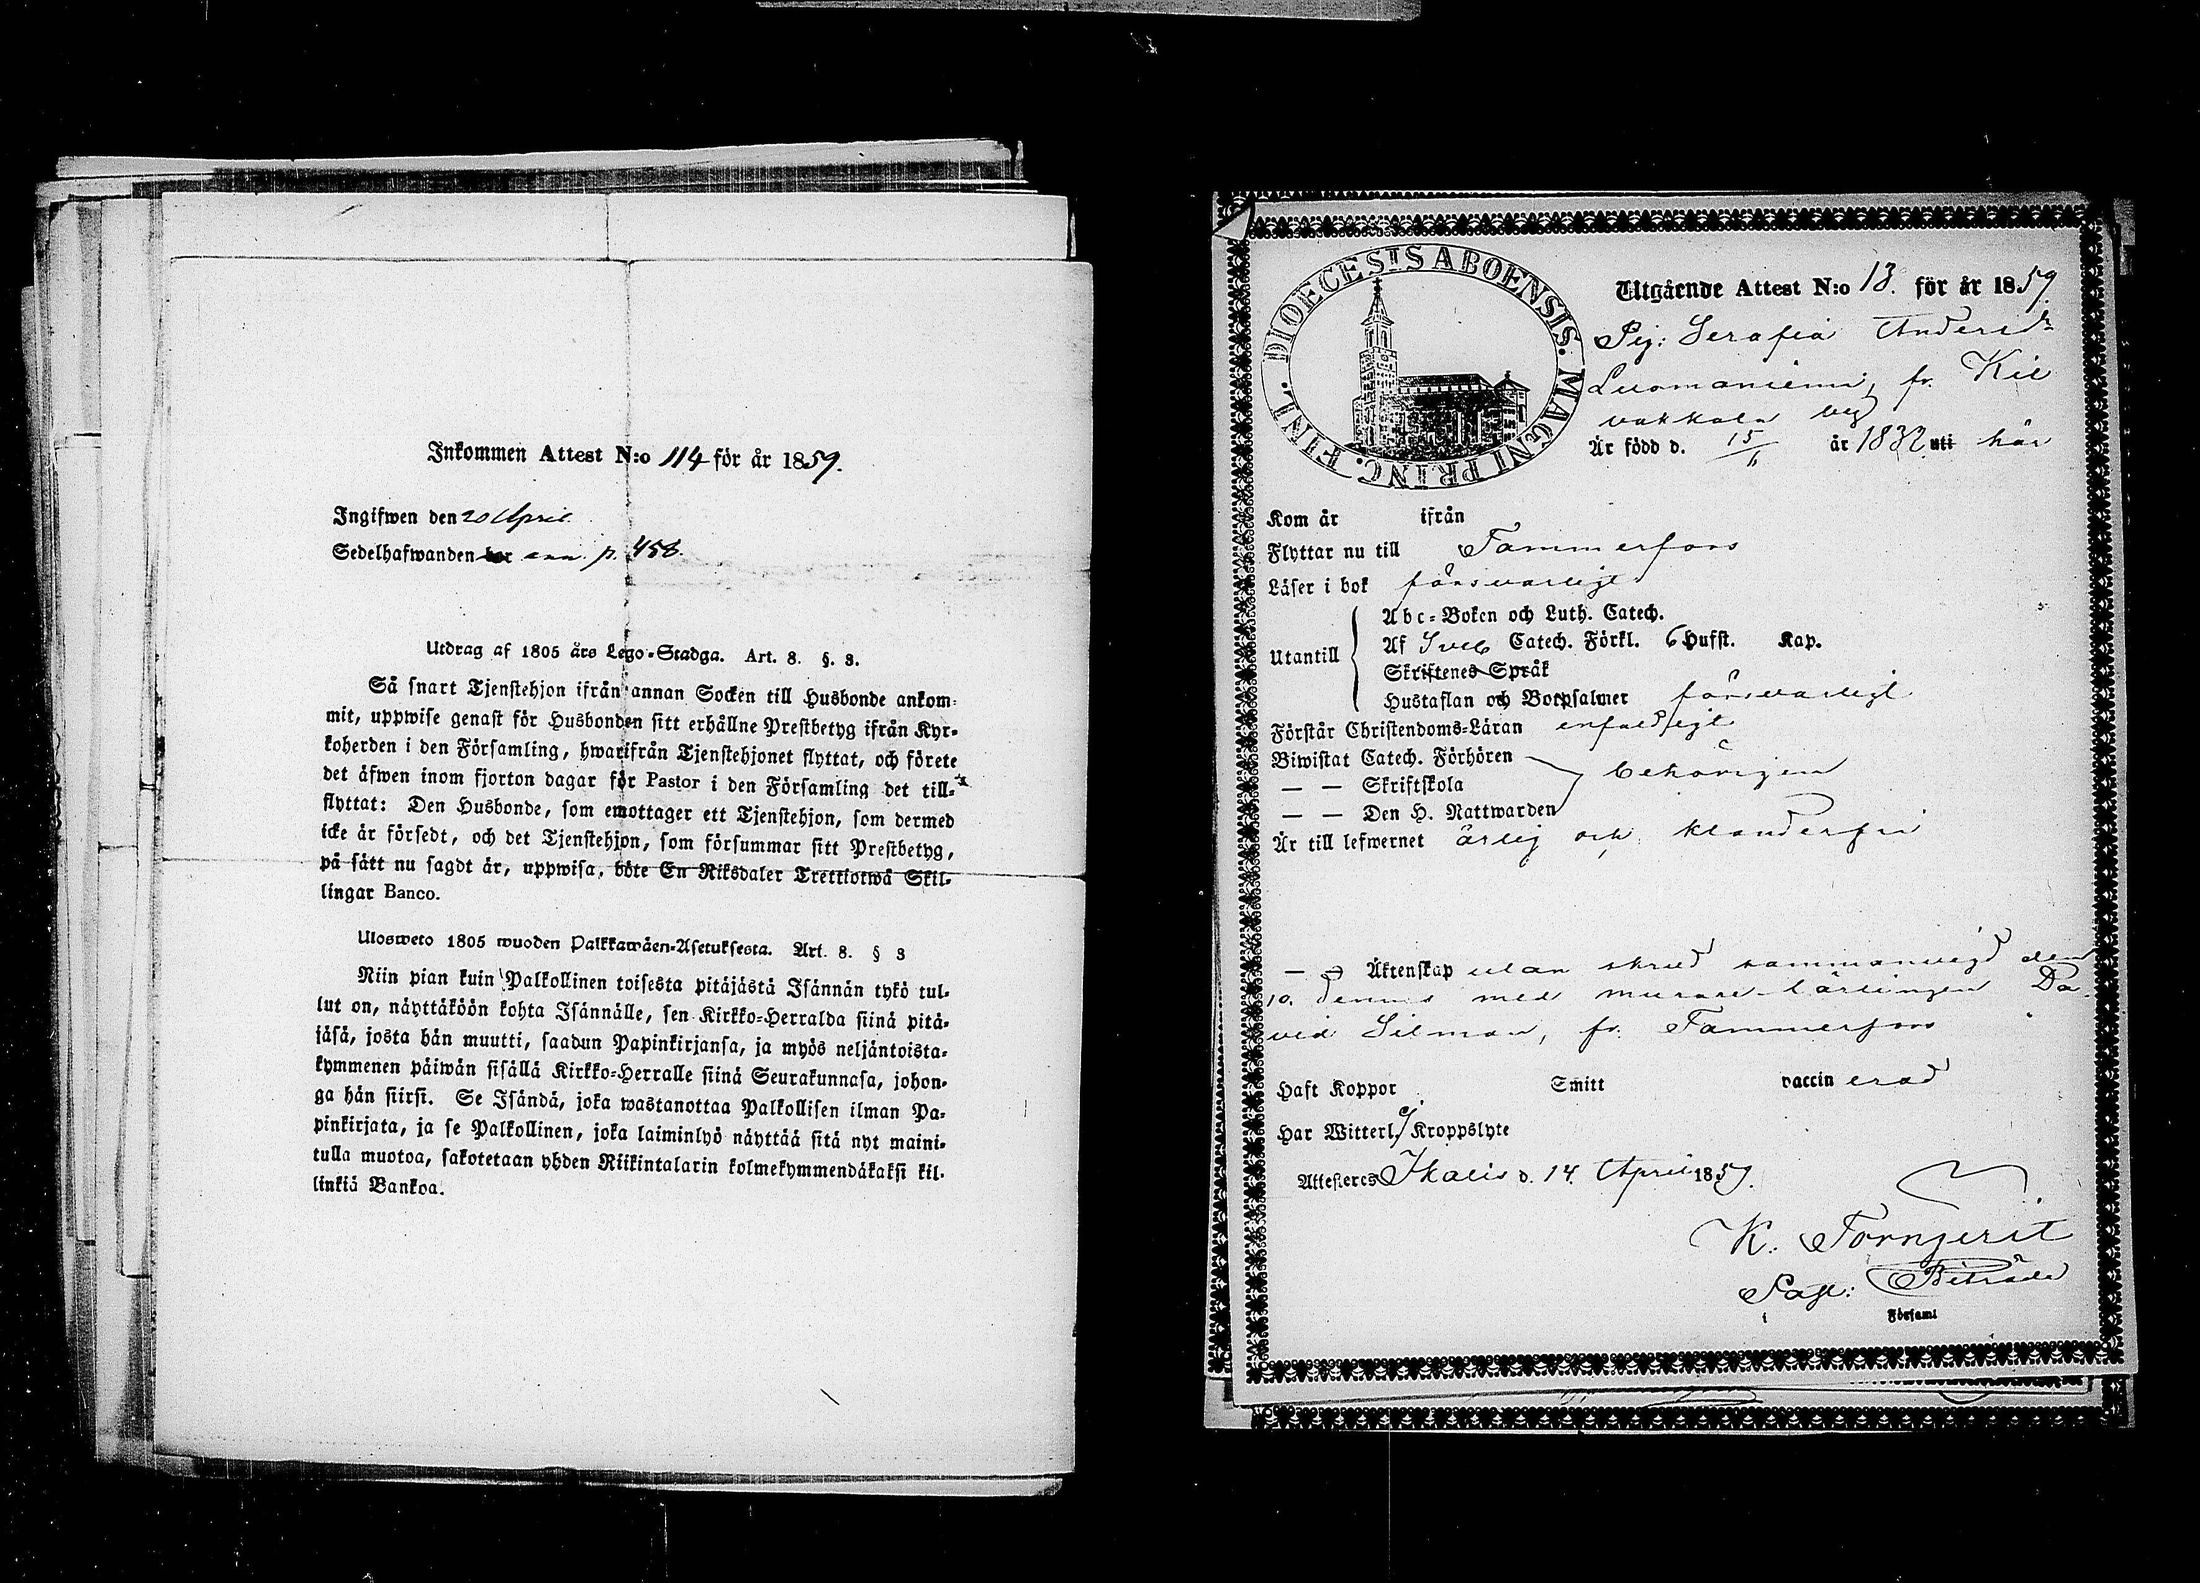 Inkommen Attest N:o 114 för år 1859.
Ingifwen den 20 April
Sedelhafwanden bor ann. p. 458.
Utdrag af 1805 års Lego-Stadga. Art. 8. §. 3.
Så snart Tjenstehjon ifrån annan Socken till Husbonde ankom-
mit, uppwise genast för Husbonden sitt erhållne Prestbetyg ifrån Kyr-
koherden i den Församling, hwarifrån Tjenstehjonet flyttat, och förete
det äfwen inom fjorton dagar för Pastor i den Församling det till-
flyttat: Den Husbonde, som emottager ett Tjenstehjon, som dermed
icke är försedt, och det Tjenstehjon, som försummar sitt Prestbetyg,
på sätt nu sagdt är, uppwisa, böte En Riksdaler Trettiotwå Skil-
lingar Banco.
Ulosweto 1805 wuoden Palkkawäen-Asetuksesta. Art. 8. § 3
Niin pian kuin Palkollinen toisesta pitäjästä Isännän tykö tul-
lut on, näyttäköön kohta Isännälle, sen Kirkko-Herralda siinä pitä-
jäsä, josta hän muutti, saadun Papinkirjansa, ja myös neljäntoista-
kymmenen päiwän sisällä Kirkko-Herralle siinä Seurakunnasa, johon-
ga hän siirsi. Se Isändä, joka wastanottaa Palkollisen ilman Pa-
pinkirjata, ja se Palkollinen, joka laiminlyö näyttää sitä nyt maini-
tulla muotoa, sakotetaan yhden Riikintalarin kolmekymmendäkaksi kil-
linkiä Bankoa.
DIOECESIS ABOENSIS. MAGNI PRINC. FINL.
Utgående Attest N:o 13. för år 1859.
Pig: Serafia Andersdr
Luomaniemi, fr. Kil
vakkala by
Är född d. 15/11 år 1832 uti här
Kom år ifrån
Flyttar nu till Tammerfors
Läser i bok försvarligt
Utantill
Abc-Boken och Luth. Catech.
Af Sveb Catech. Förkl. 6 Hufst. Kap.
Skriftenes Språk
Hustaflan och Botpsalmer försvarligt
Förstår Christendoms-Läran enfaldigt
Biwistat Catech. Förhören
— — Skriftskola behörigen
— — Den H. Nattwarden
Är till lefwernet ärlig och klanderfri
— — Äktenskap utan skrud sammanvigd den
10. dennes med murare-lärlingen Da-
vid Silman, fr. Tammerfors
Haft Koppor Smitt vaccinerad
Har Witterl. ej Kroppslyte
Attesteres Ikalis d. 14. April 1859.
K. Forngerit
Past: Biträde
i Församl